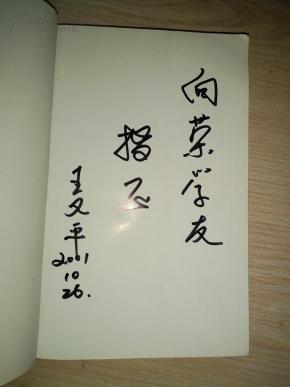 向荣学友
指正
王又平
2001
10
26.